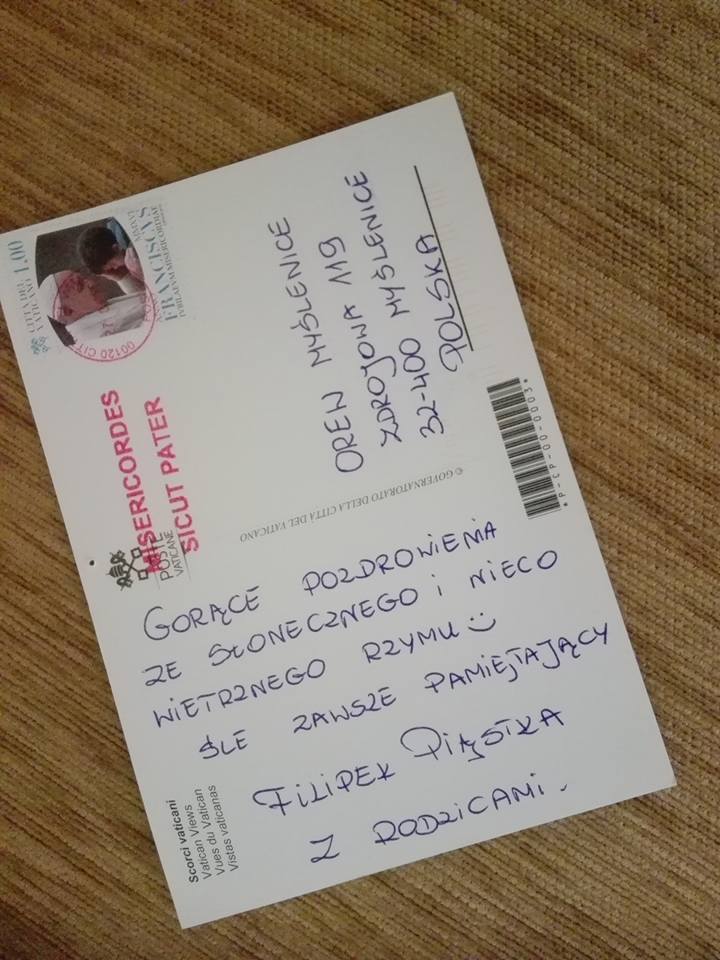 Scorci vaticani
Vatican Views
Vues du Vatican
Vistas vaticanas
GORĄCE POZDROWIENIA
ZE SŁONECZNEGO i NIECO
WIETRZNEGO RZYMU
ŚLE ZAWSZE PAMIĘTAJĄCY
FILIPEK PIĄSTKA
Z RODZICAMI.
POSTE
VATICANE
MISERICORDES
SICUT PATER
© GOVERNATORATO DELLA CITTÀ DEL VATICANO
CITTÀ DEL
VATICANO 1,00
FRANCISCVS
IVBILAEVM MISERICORDIAE
00120 CIT
OREW MYŚLENICE
ZDROJOWA 119
32-400 MYŚLENICE
POLSKA
*P-CP-00-0003*